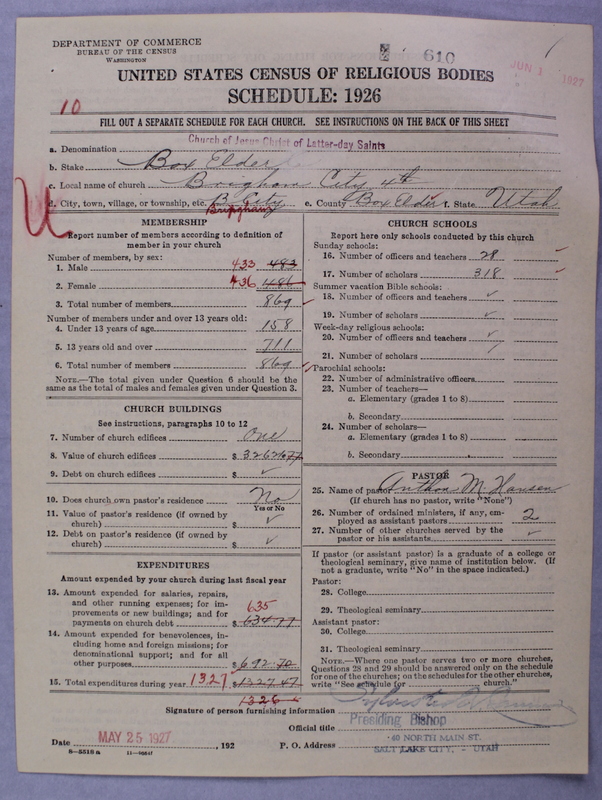 DEPARTMENT OF COMMERCE
BUREAU OF THE CENSUS
WASHINGTON
610
JUN 1 1927
UNITED STATES CENSUS OF RELIGIOUS BODIES
SCHEDULE: 1926
10
FILL OUT A SEPARATE SCHEDULE FOR EACH CHURCH. SEE INSTRUCTIONS ON THE BACK OF THIS SHEET
a. Denomination Church of Jesus Christ of Latter-day Saints
b. Stake Box Elder
c. Local name of church Brigham City 4th
d. City, town, village, or township, etc. B. City Brigham e. County Box Elder f. State Utah
MEMBERSHIP
Report number of members according to definition of
member in your church
Number of members, by sex:
1. Male 433 483
2. Female 436 486
3. Total number of members 869
Number of members under and over 13 years old:
4. Under 13 years of age 158
5. 13 years old and over 711
6. Total number of members 869
NOTE.—The total given under Question 6 should be
same as the total of males and females given under Question 3.
CHURCH BUILDINGS
See instructions, paragraphs 10 to 12
7. Number of church edifices One
8. Value of church edifices $ 32626 77
9. Debt on church edifices $ ✓
10. Does church own pastor's residence No
Yes or No
11. Value of pastor's residence (if owned by
church) $ ✓
12. Debt on pastor's residence (if owned by
church) $ ✓
EXPENDITURES
Amount expended by your church during last fiscal year
13. Amount expended for salaries, repairs,
and other running expenses; for im-
provements or new buildings; and for
payments on church debt $ 635 634 77
14. Amount expended for benevolences, in-
cluding home and foreign missions; for
denominational support; and for all
other purposes $ 692 70
15. Total expenditures during year 1327 $ 1327 47
1326
CHURCH SCHOOLS
Report here only schools conducted by this church
Sunday schools:
16. Number of officers and teachers 28
17. Number of scholars 318
Summer vacation Bible schools:
18. Number of officers and teachers ✓
19. Number of scholars ✓
Week-day religious schools:
20. Number of officers and teachers ✓
21. Number of scholars
Parochial schools:
22. Number of administrative officers
23. Number of teachers—
a. Elementary (grades 1 to 8)
b. Secondary
24. Number of scholars—
a. Elementary (grades 1 to 8)
b. Secondary
PASTOR
25. Name of pastor Anthon M. Hansen
(If church has no pastor, write "None")
26. Number of ordained ministers, if any, em-
ployed as assistant pastors 2
27. Number of other churches served by the
pastor or his assistants ✓
If pastor (or assistant pastor) is a graduate of a college or
theological seminary, give name of institution below. (If
not a graduate, write "No" in the space indicated.)
Pastor:
28. College
29. Theological seminary
Assistant pastor:
30. College
31. Theological seminary
NOTE.—Where one pastor serves two or more churches,
Questions 28 and 29 should be answered only on the schedule
for one of the churches; on the schedules for the other churches,
write "See schedule for church."
Signature of person furnishing information
Official title Presiding Bishop
Date MAY 25 1927, 192 P. O. Address 40 NORTH MAIN ST.
SALT LAKE CITY, - UTAH
8—5510 a